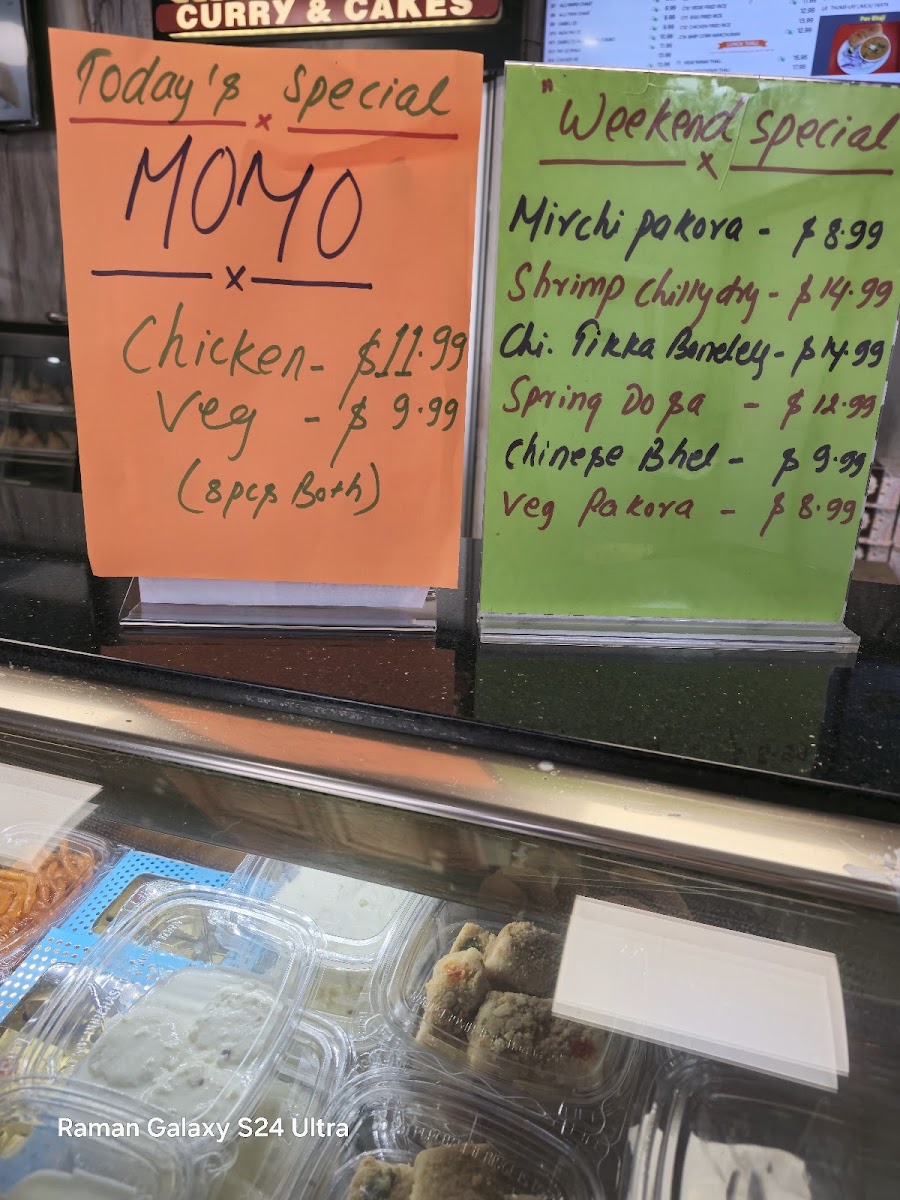 CURRY & CAKES
Today's Special
x
MOMO
x
Chicken - $11.99
Veg - $ 9.99
(8pcs Both)
"Weekend special
x
Mirchi pakora - $ 8.99
Shrimp chilly dry - $ 14.99
Chi. Tikka - $14.99
Spring Dosa - $ 12.99
Chinese Bhel - $ 9.99
Veg Pakora - $ 8.99
Pav Bhaji
Raman Galaxy S24 Ultra